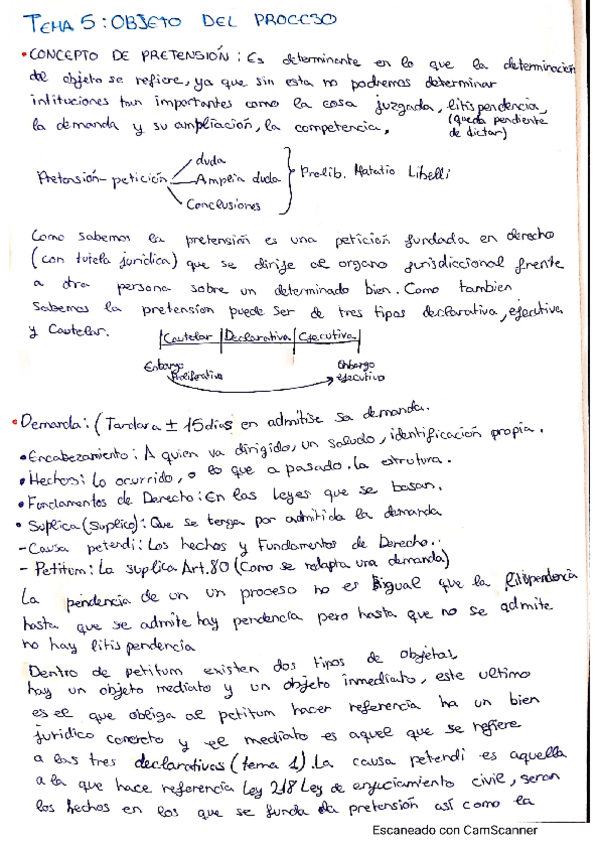 TEMA 5: OBJETO DEL PROCESO
• CONCEPTO DE PRETENSIÓN: Es determinante en lo que la determinación
del objeto se refiere, ya que sin esta no podremos determinar
intituciones tan importantes como la cosa juzgada, litispendencia,
la demanda y su ampliación, la competencia, (queda pendiente
de dictar)
duda
Pretensión - petición Amplia duda Prohib. Mutatio Libelli
Conclusiones
Como sabemos la pretensión es una petición fundada en derecho
(con tutela jurídica) que se dirije al organo jurisdiccional frente
a otra persona sobre un determinado bien. Como tambien
Sabemos la pretension puede ser de tres tipos declarativa, ejecutiva
y Cautelar.
|Cautelar|Declarativa|Ejecutiva|
Embargo Embargo
ejecutivo
• Demanda: (Tardara ± 15 dias en admitise sa demanda.
• Encabezamiento: A quien va dirigido, un saludo, identificación propia.
• Hechos: Lo ocurrido, o lo que a pasado. la estrutura.
• Fundamentos de Derecho: En las leyes que se basan.
• Suplica (suplico): Que se tenga por admitida la demanda
- Causa petendi: Los hechos y Fundamentos de Derecho..
- Petitum: La suplica Art. 80 (Como se relapta una demanda)
La pendencia de un un proceso no es igual que la litispendencia
hasta que se admite hay pendencia pero hasta que no se admite
no hay litis pendencia
Dentro de petitum existen dos tipos de objetas,
hay un objeto mediato y un objeto inmediato, este ultimo
es el que obliga al petitum hacer referencia ha un bien
juridico concreto y el mediato es aquel que se refiere
a las tres declarativas (tema 1). La causa petendi es aquella
a la que hace referencia Ley 218 Ley de enjuciamiento civil, seran
los hechos en los que se funda la pretensión así como la
Escaneado con CamScanner